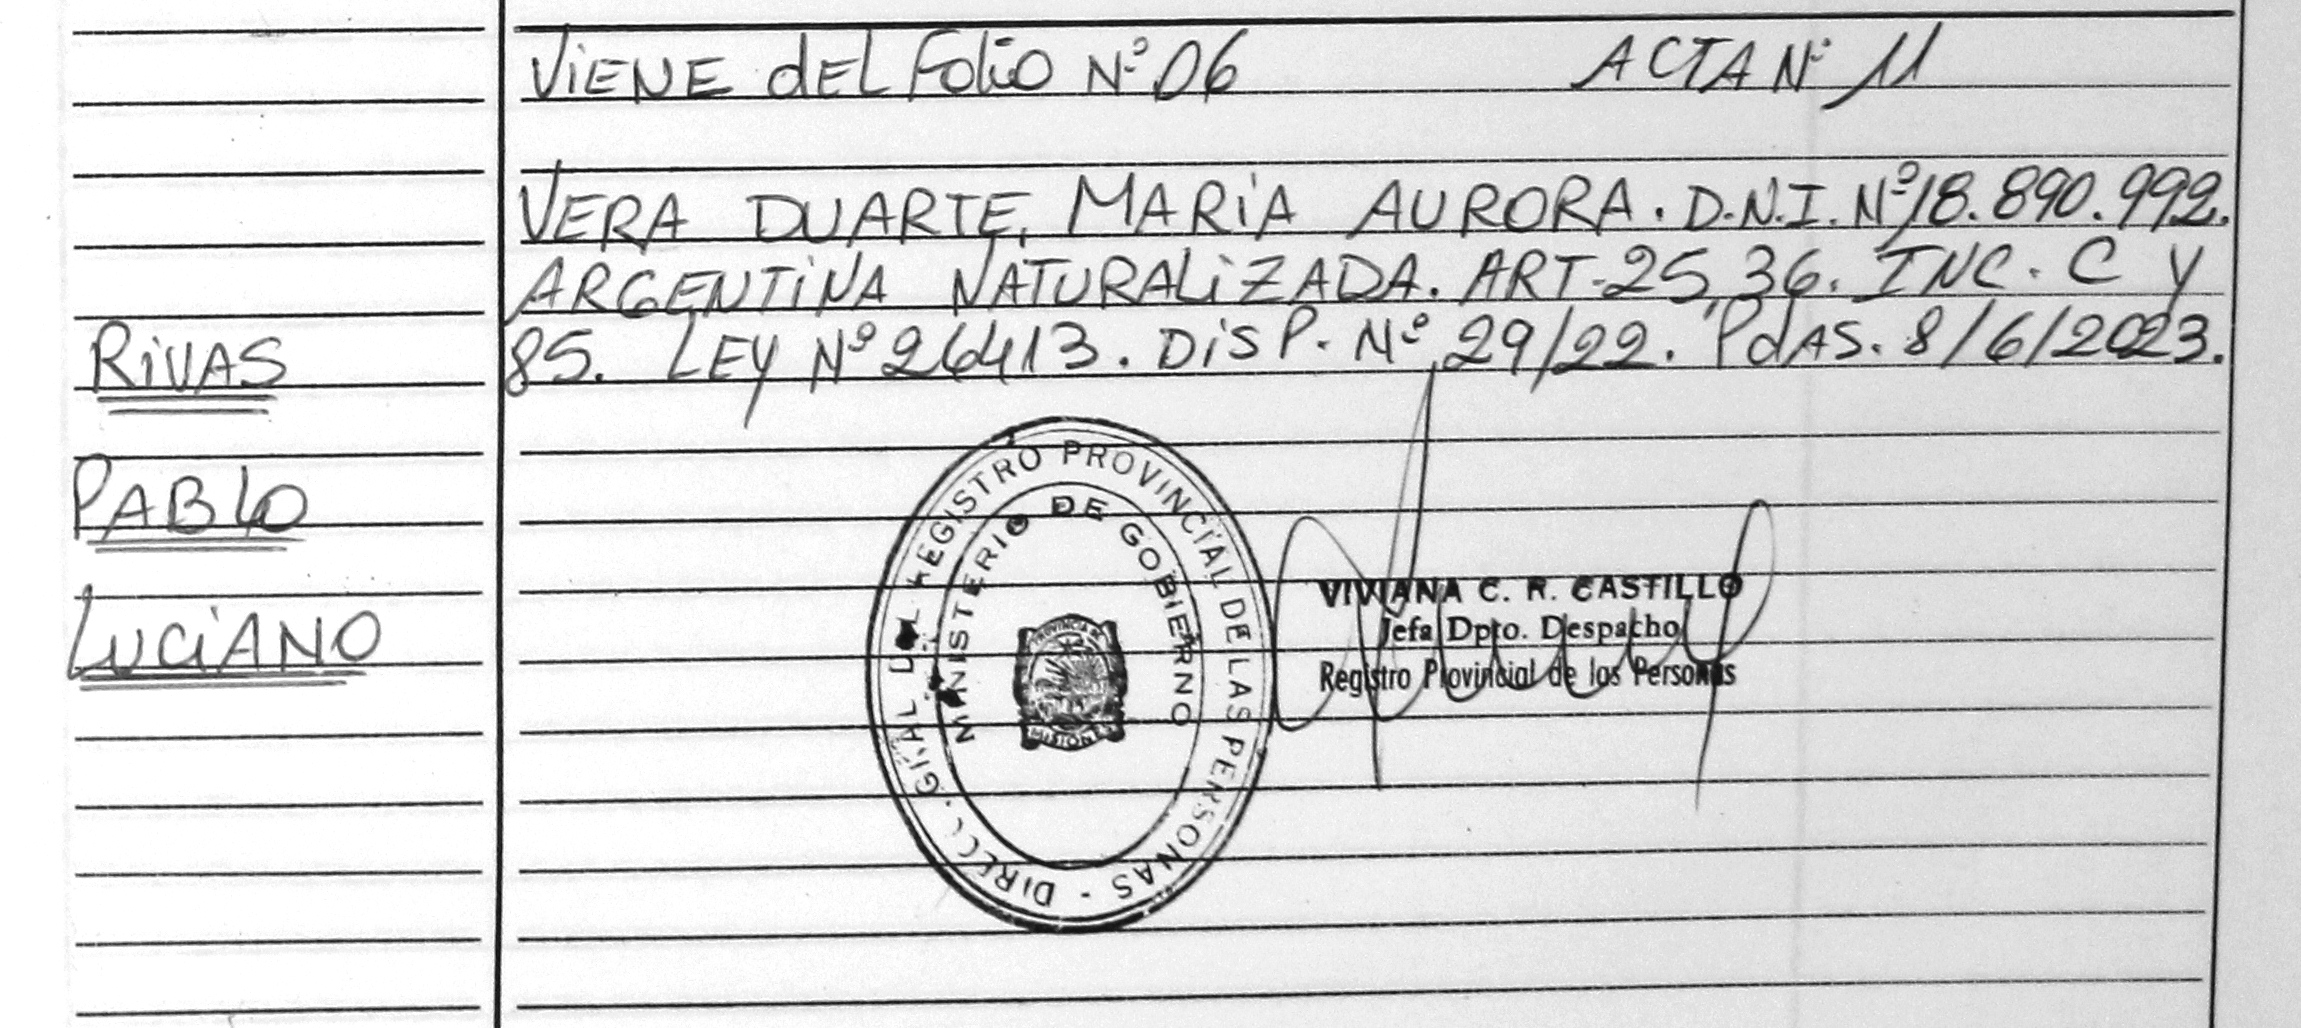 Viene del Folio Nº 06 ACTA Nº 11
VERA DUARTE, MARiA AURORA. D.N.I. Nº 18.890.992.
ARGENTiNA NATURALiZADA. ART. 25, 36. INC. C y
85. LEY Nº 26413. DiSP. Nº 29/22. PdAS. 8/6/2023.
RiVAS
PABLO
LUCiANO
REGISTRO PROVINCIAL DE LAS PERSONAS -
MINISTERIO DE GOBIERNO
PROVINCIA DE
MISIONES
VIVIANA C. R. CASTILLO
Jefa Dpto. Despacho
Registro Provincial de las Personas